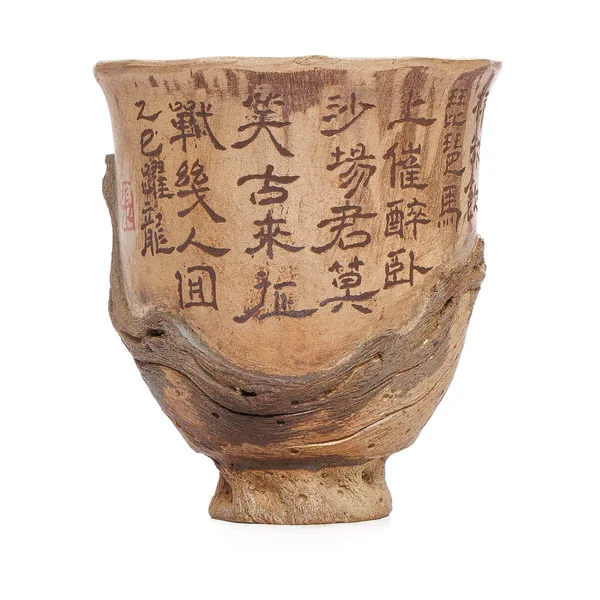 琵琶馬
上催醉卧
沙場君莫
笑古來征
戰幾人囬
乙巳躍龍